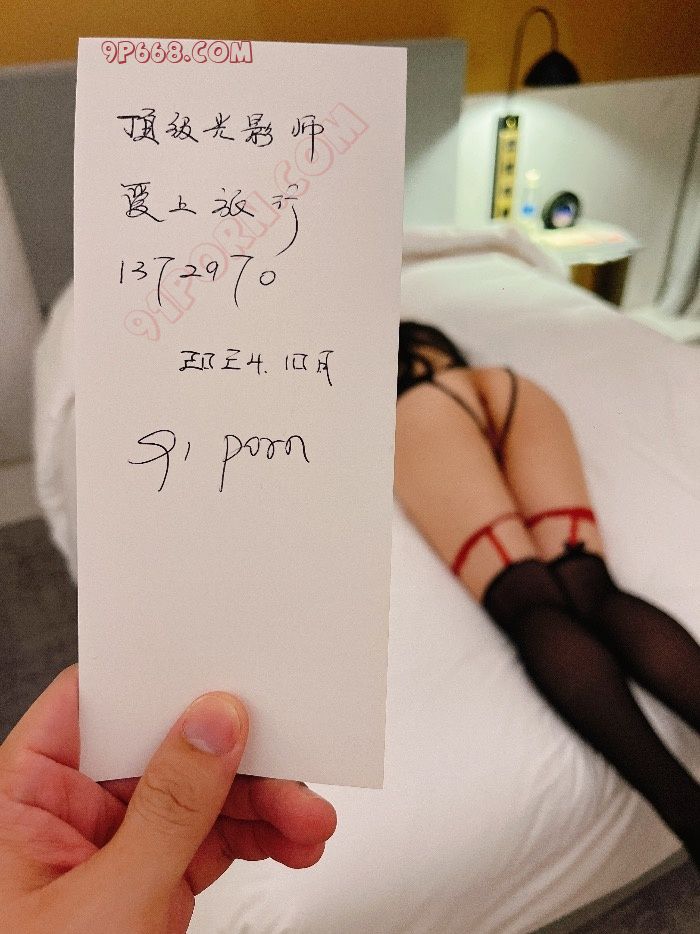 9P668.COM
顶级光影师
爱上旅行
1372970
91PORN.COM
2024.10月
91 porn